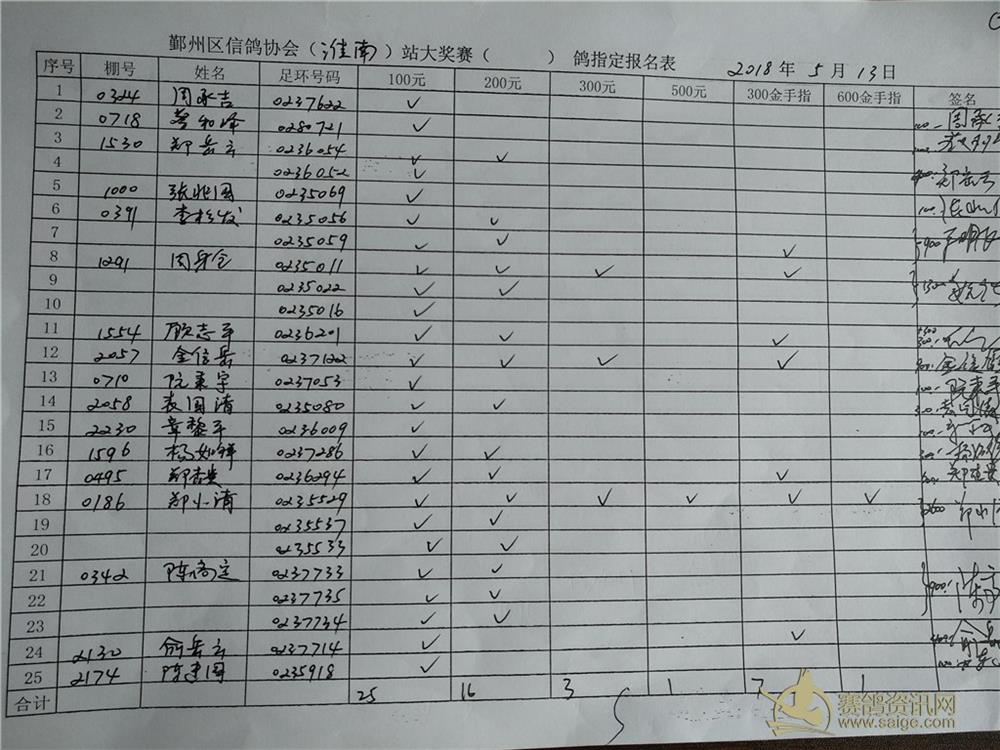 鄞州区信鸽协会（淮南）站大奖赛（ ）鸽指定报名表 2018年5月13日
序号 棚号 姓名 足环号码 100元 200元 300元 500元 300金手指 600金手指 签名
1 0324 周承吉 0237622 ✓
2 0718 和峰 0280721 ✓
3 1530 郑岳云 0236054 ✓ ✓
4 0236052 ✓
5 1000 张兆国 0235069 ✓
6 0391 李 发 0235056 ✓ ✓
7 0235059 ✓ ✓
8 1291 周 0235011 ✓ ✓ ✓ ✓
9 0235022 ✓ ✓
10 0235016 ✓
11 1554 顾志平 0236201 ✓ ✓ ✓
12 2057 金信岳 0237122 ✓ ✓ ✓ ✓
13 0710 阮 宇 0237053 ✓
14 2058 袁国清 0235080 ✓ ✓
15 2230 章黎平 0236009 ✓
16 1596 杨如祥 0237286 ✓ ✓
17 0495 郑 0236294 ✓ ✓ ✓
18 0186 郑小清 0235529 ✓ ✓ ✓ ✓ ✓ ✓
19 0235537 ✓ ✓
20 0235533 ✓ ✓
21 0342 陈 定 0237733 ✓ ✓
22 0237735 ✓ ✓
23 0237734 ✓ ✓
24 2130 俞岳云 0237714 ✓ ✓
25 2174 陈建国 0235918 ✓
合计 25 16 3 1 7 1
赛鸽资讯网
www.saige.com